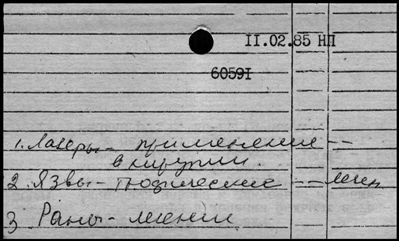 II.02.85 НП
6059I
1. Лазеры - применение --
в хирургии.
2 Язвы - трофические -- лечен
3 Раны - лечение